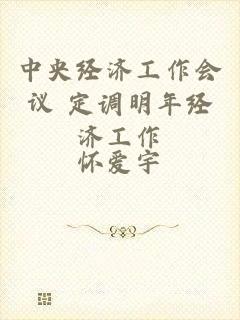 中央经济工作会
议 定调明年经
济工作
怀爱宇